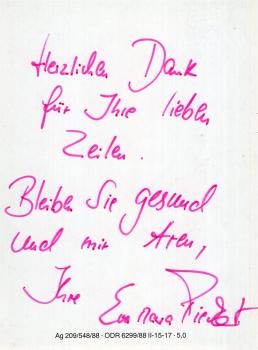 Herzlichen Dank
für Ihre lieben
Zeilen.
Bleiben Sie gesund
und mir treu,
Ihre
Eva Maria
Ag 209/548/88 · ODR 6299/88 II-15-17 · 5,0